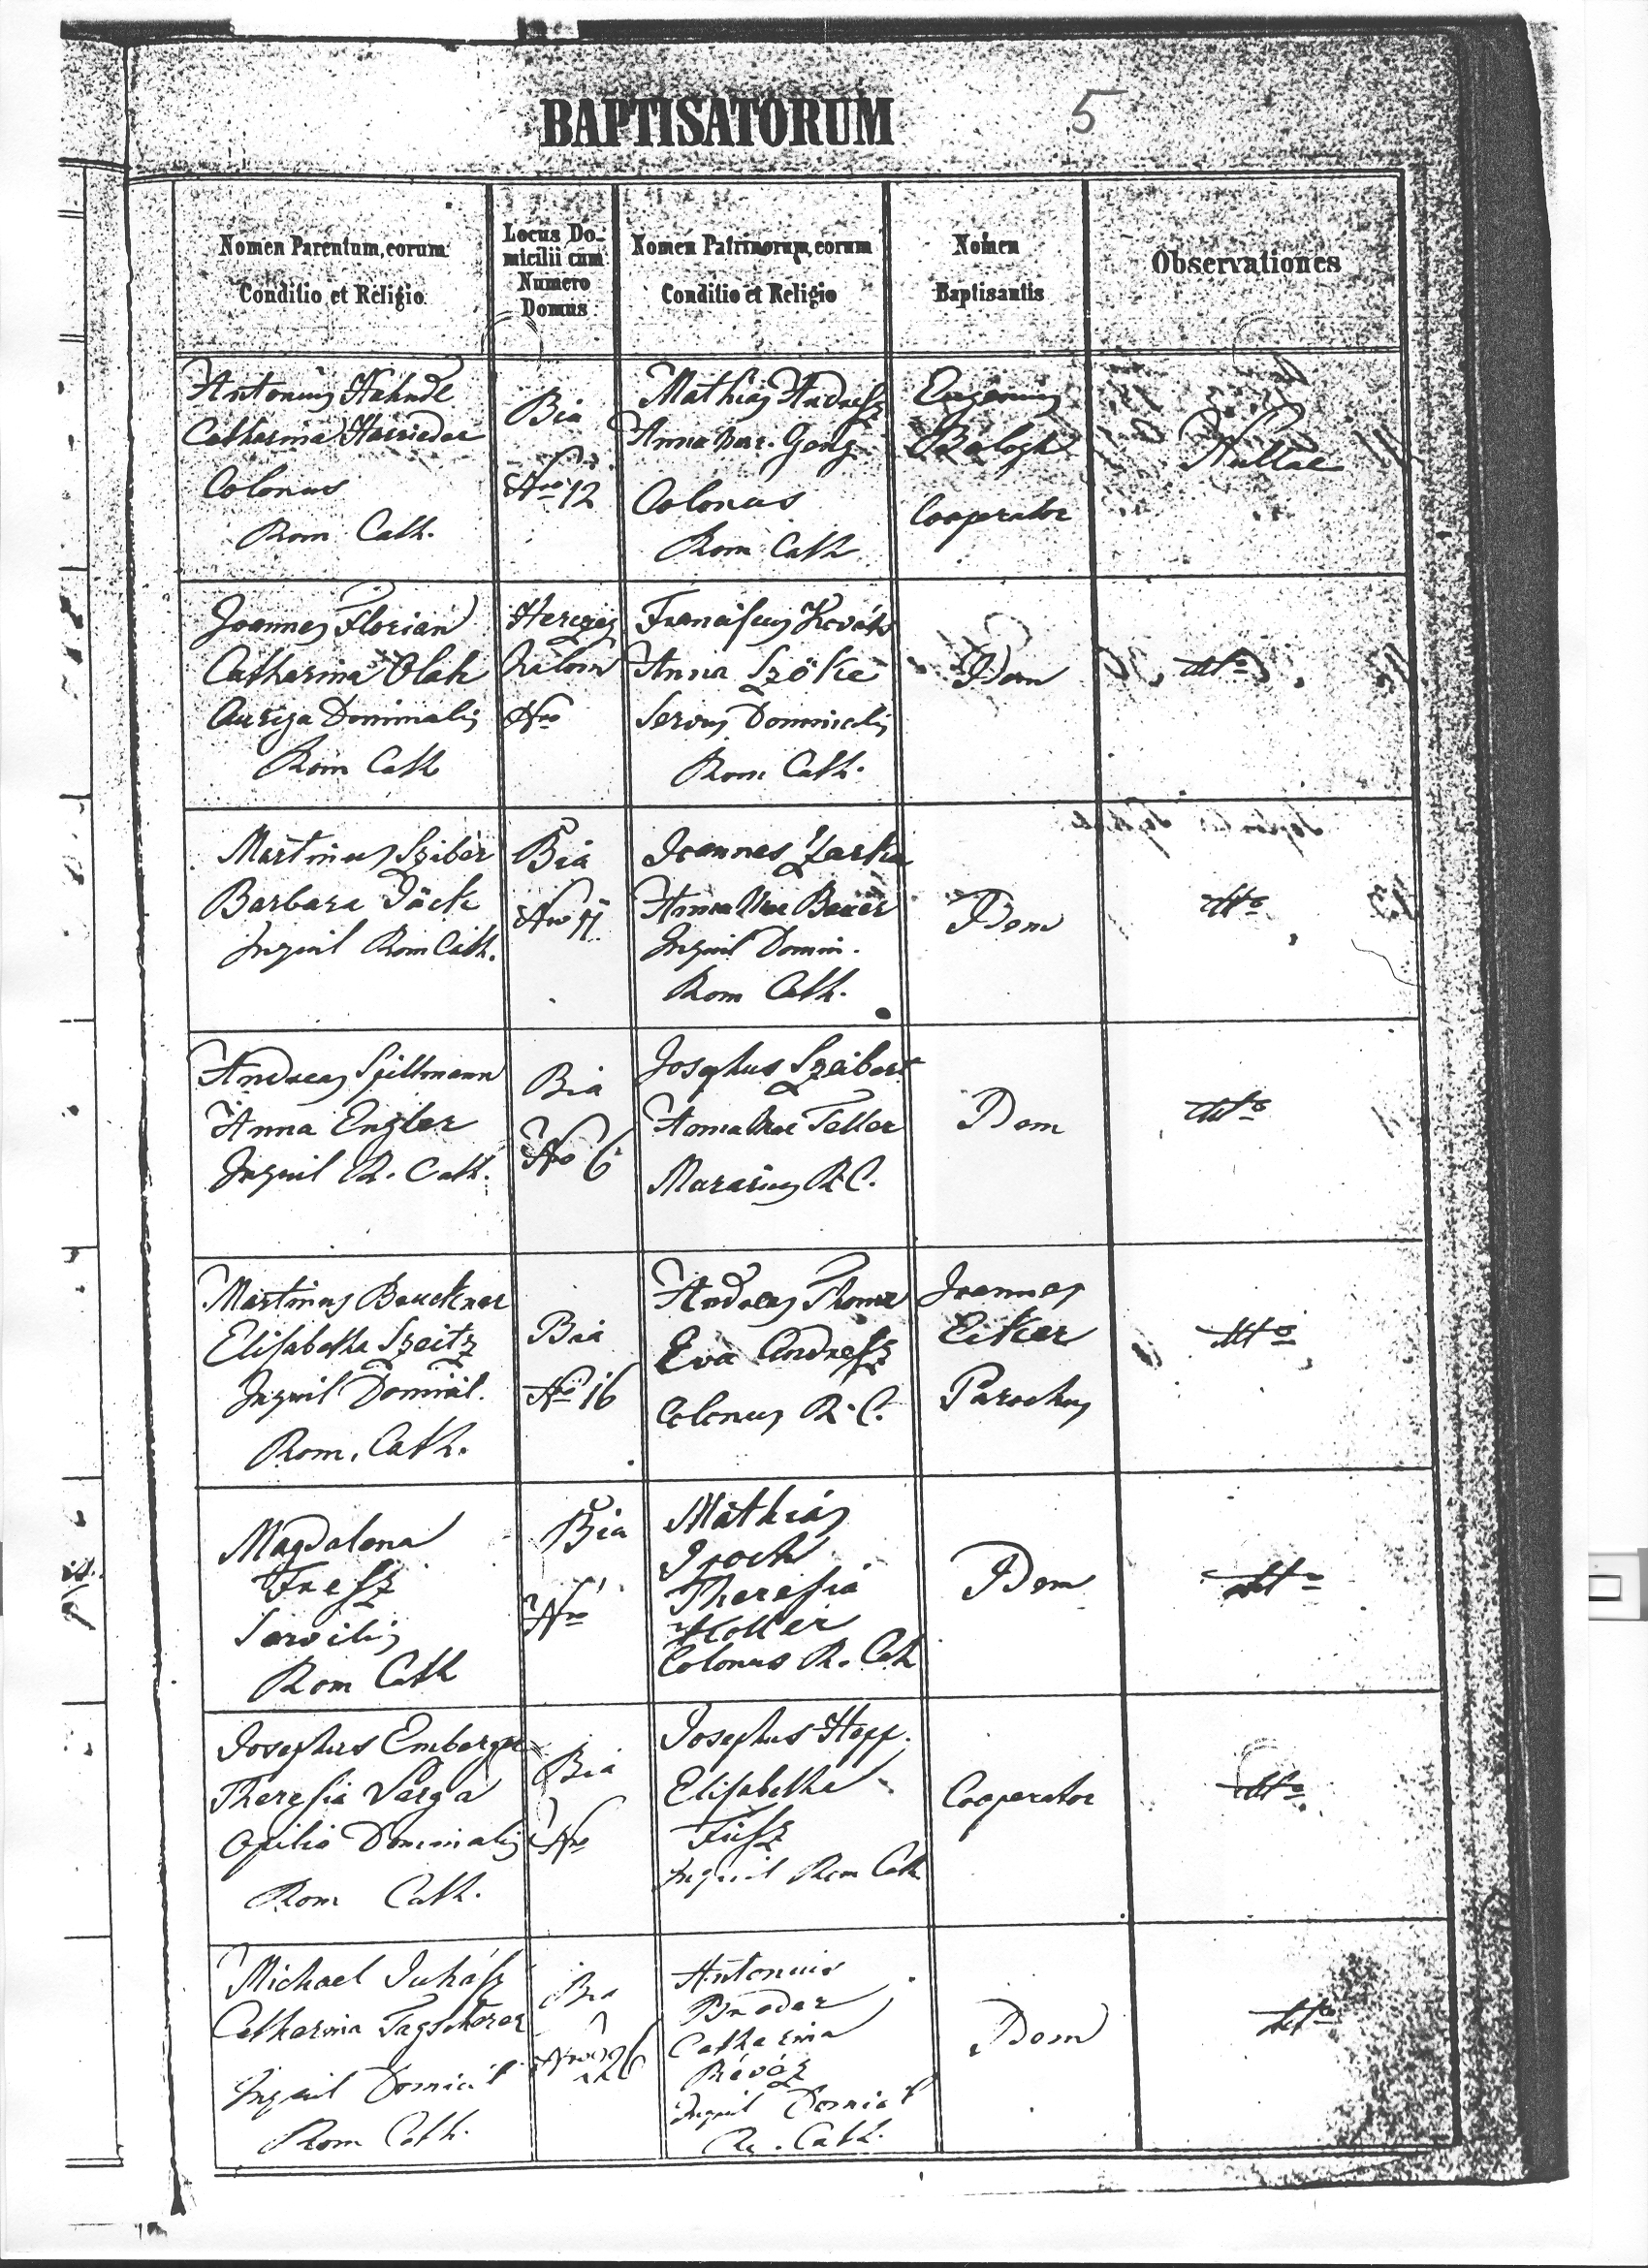 BAPTISATORUM
5
Nomen Parentum, eorum
Conditio et Religio
Locus Do-
micilii cum
Numero
Domus
Nomen Patrinorum, eorum
Conditio et Religio
Nomen
Baptisantis
Observationes
Antonius Hahndl
Catharina
Colonus
Rom Cath.
Bia
Nro 12
Mathias Andresz
Anna Mar. Geng
Colonus
Rom Cath
Eugenius
Balogh
Cooperator
Nullae
Joannes Florian
Catharina Olah
Auriga Dominalis
Rom Cath
Herczeg
halom
Nro
Franciscus Kováts
Anna Szőke
Servus Dominalis
Rom Cath.
Idem
dtto
Martinus Sziber
Barbara Jäck
Inquil Rom Cath.
Bia
Nro
Joannes Zarka
Anna Mar Bauer
Inquil Domin.
Rom Cath.
Idem
dtto
Andreas Spillmann
Anna Engler
Inquil R. Cath.
Bia
Nro 6
Josephus Szeibert
Anna Mar Feller
Murarius R.C.
Idem
dtto
Martinus Bruckner
Elisabetha Szeitz
Inquil Dominal.
Rom. Cath.
Bia
Nro 16
Andreas Thoma
Eva Andresz
Colonus R. C.
Joannes
Eitner
Parochus
dtto
Magdalena
Fresz
Servilis
Rom Cath
Bia
Nro
Mathias
Theresia
Koller
Colonus R. Cath
Idem
dtto
Josephus Emberger
Theresia Varga
Opilio Dominalis
Rom Cath.
Bia
Nro
Josephus Hopp.
Elisabetha
Füsz
Inquil Rom Cath
Cooperator
dtto
Michael Juhász
Catharina Tagscherer
Inquil Domial
Rom Cath.
Bia
Nro 126
Antonius
Bruder
Catharina
Révész
Inquil Domial
R. Cath.
Idem
dtto